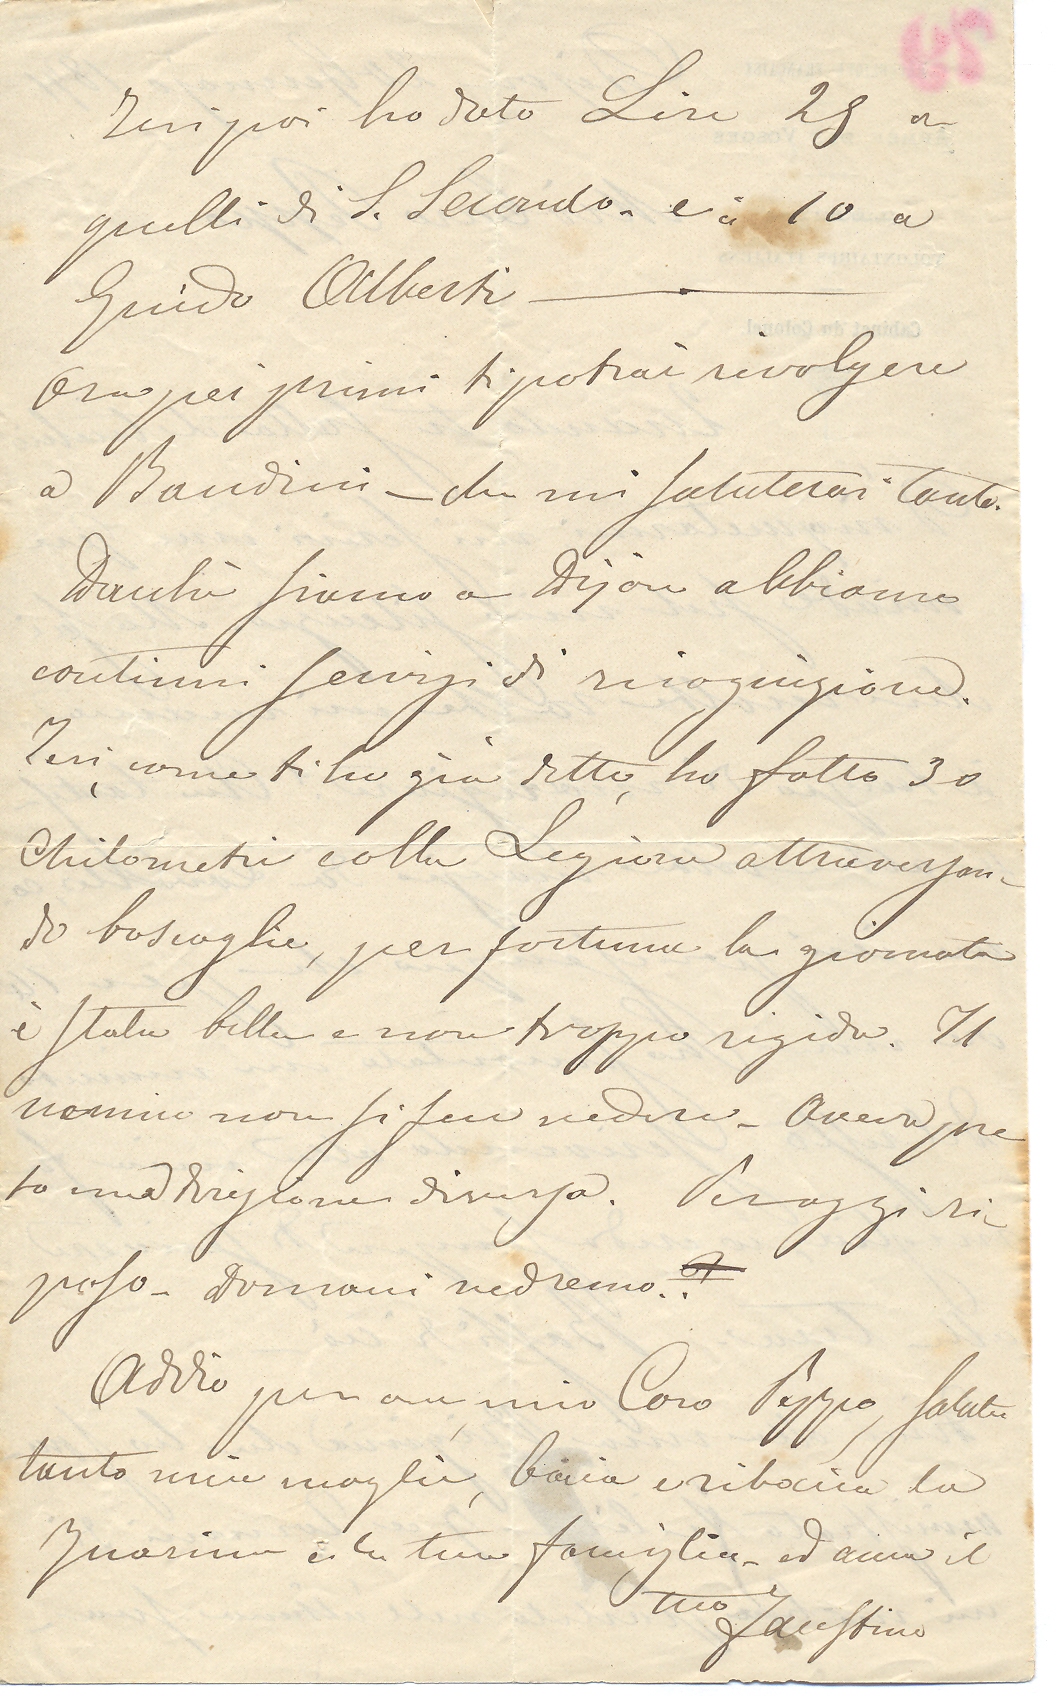 29
Ieri poi ho dato Lire 28 a
quelli di S. Secondo. e a 10 a
Guido Alberti
Ora pei primi ti potrai rivolgere
a Bandini – che mi saluterai tanto.
Dacchè siamo a Dijon abbiamo
continui servizi di ricognizione.
Ieri, come ti ho già detto, ho fatto 30
Chilometri colla Legione attraversan-
do boscaglie, per fortuna la giornata
è stata bella e non troppo rigida. Il
nemico non si fece vedere – Aveva pre
so una direzione diversa. Per oggi ri-
poso – Domani vedremo..
Addio per ora, mio Caro Peppo, saluta
tanto mia moglie, bacia e ribacia la
e la tua famiglia – ed ama il
tuo Faustino
Cabinet du Colonel